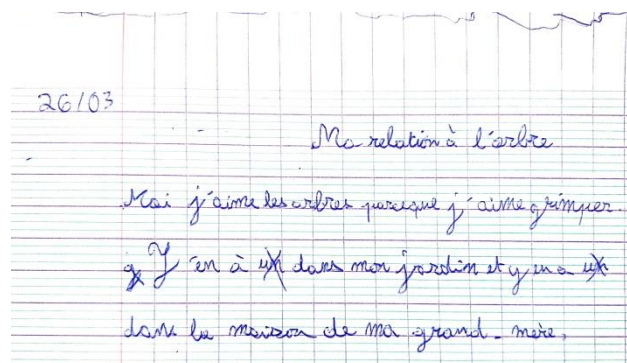 26/03
Ma relation à l'arbre
Moi j'aime les arbres parceque j'aime grimper.
Y en à dans mon jardin et y en a
dans la maison de ma grand-mère,